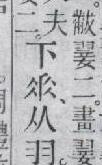 黻翣二。畫翣
夫
二。
下𠂹、从羽